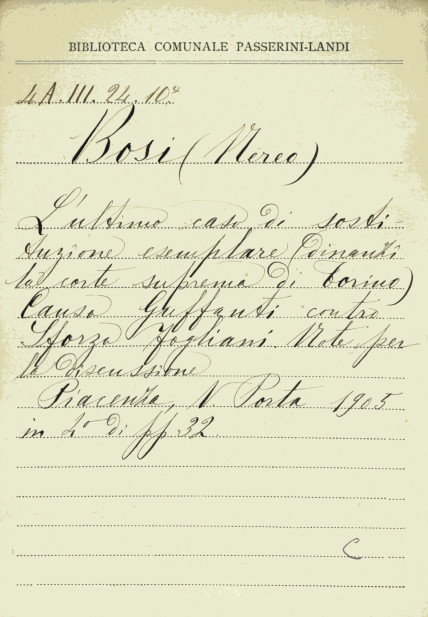 BIBLIOTECA COMUNALE PASSERINI-LANDI
4A.III.24.10°
Bosi (Nereo)
L'ultimo caso di sosti-
tuzione esemplare (dinanzi
la corte suprema di Torino)
Causa Guffanti contro
Sforza Fogliani. Note per
la discussione
Piacenza, V. Porta 1905
in 4° di pp. 32
C